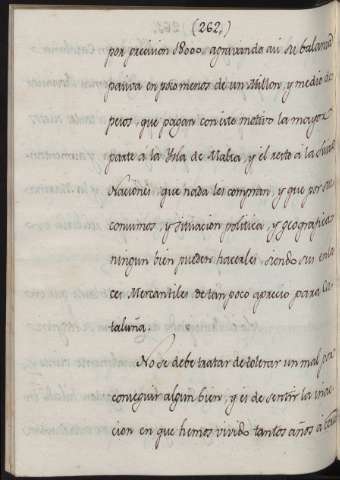 (262,)
por precision 18000, agravando asi su balanza
pasiva en poco menos de un Millon, y medio de
pesos, que pagan con este motivo la mayor
parte á la Ysla de Malta, y el resto á la
Naciones, que nada les compran, y que por sus
consumos, y situacion politica, y geografica
ningun bien pueden hacerles, siendo sus enla
ces Mercantiles de tan poco aprecio para Ca-
taluña.
No se debe tratar de tolerar un mal por
conseguir algun bien, y es de sentir la inac-
cion en que hemos vivido tantos años á